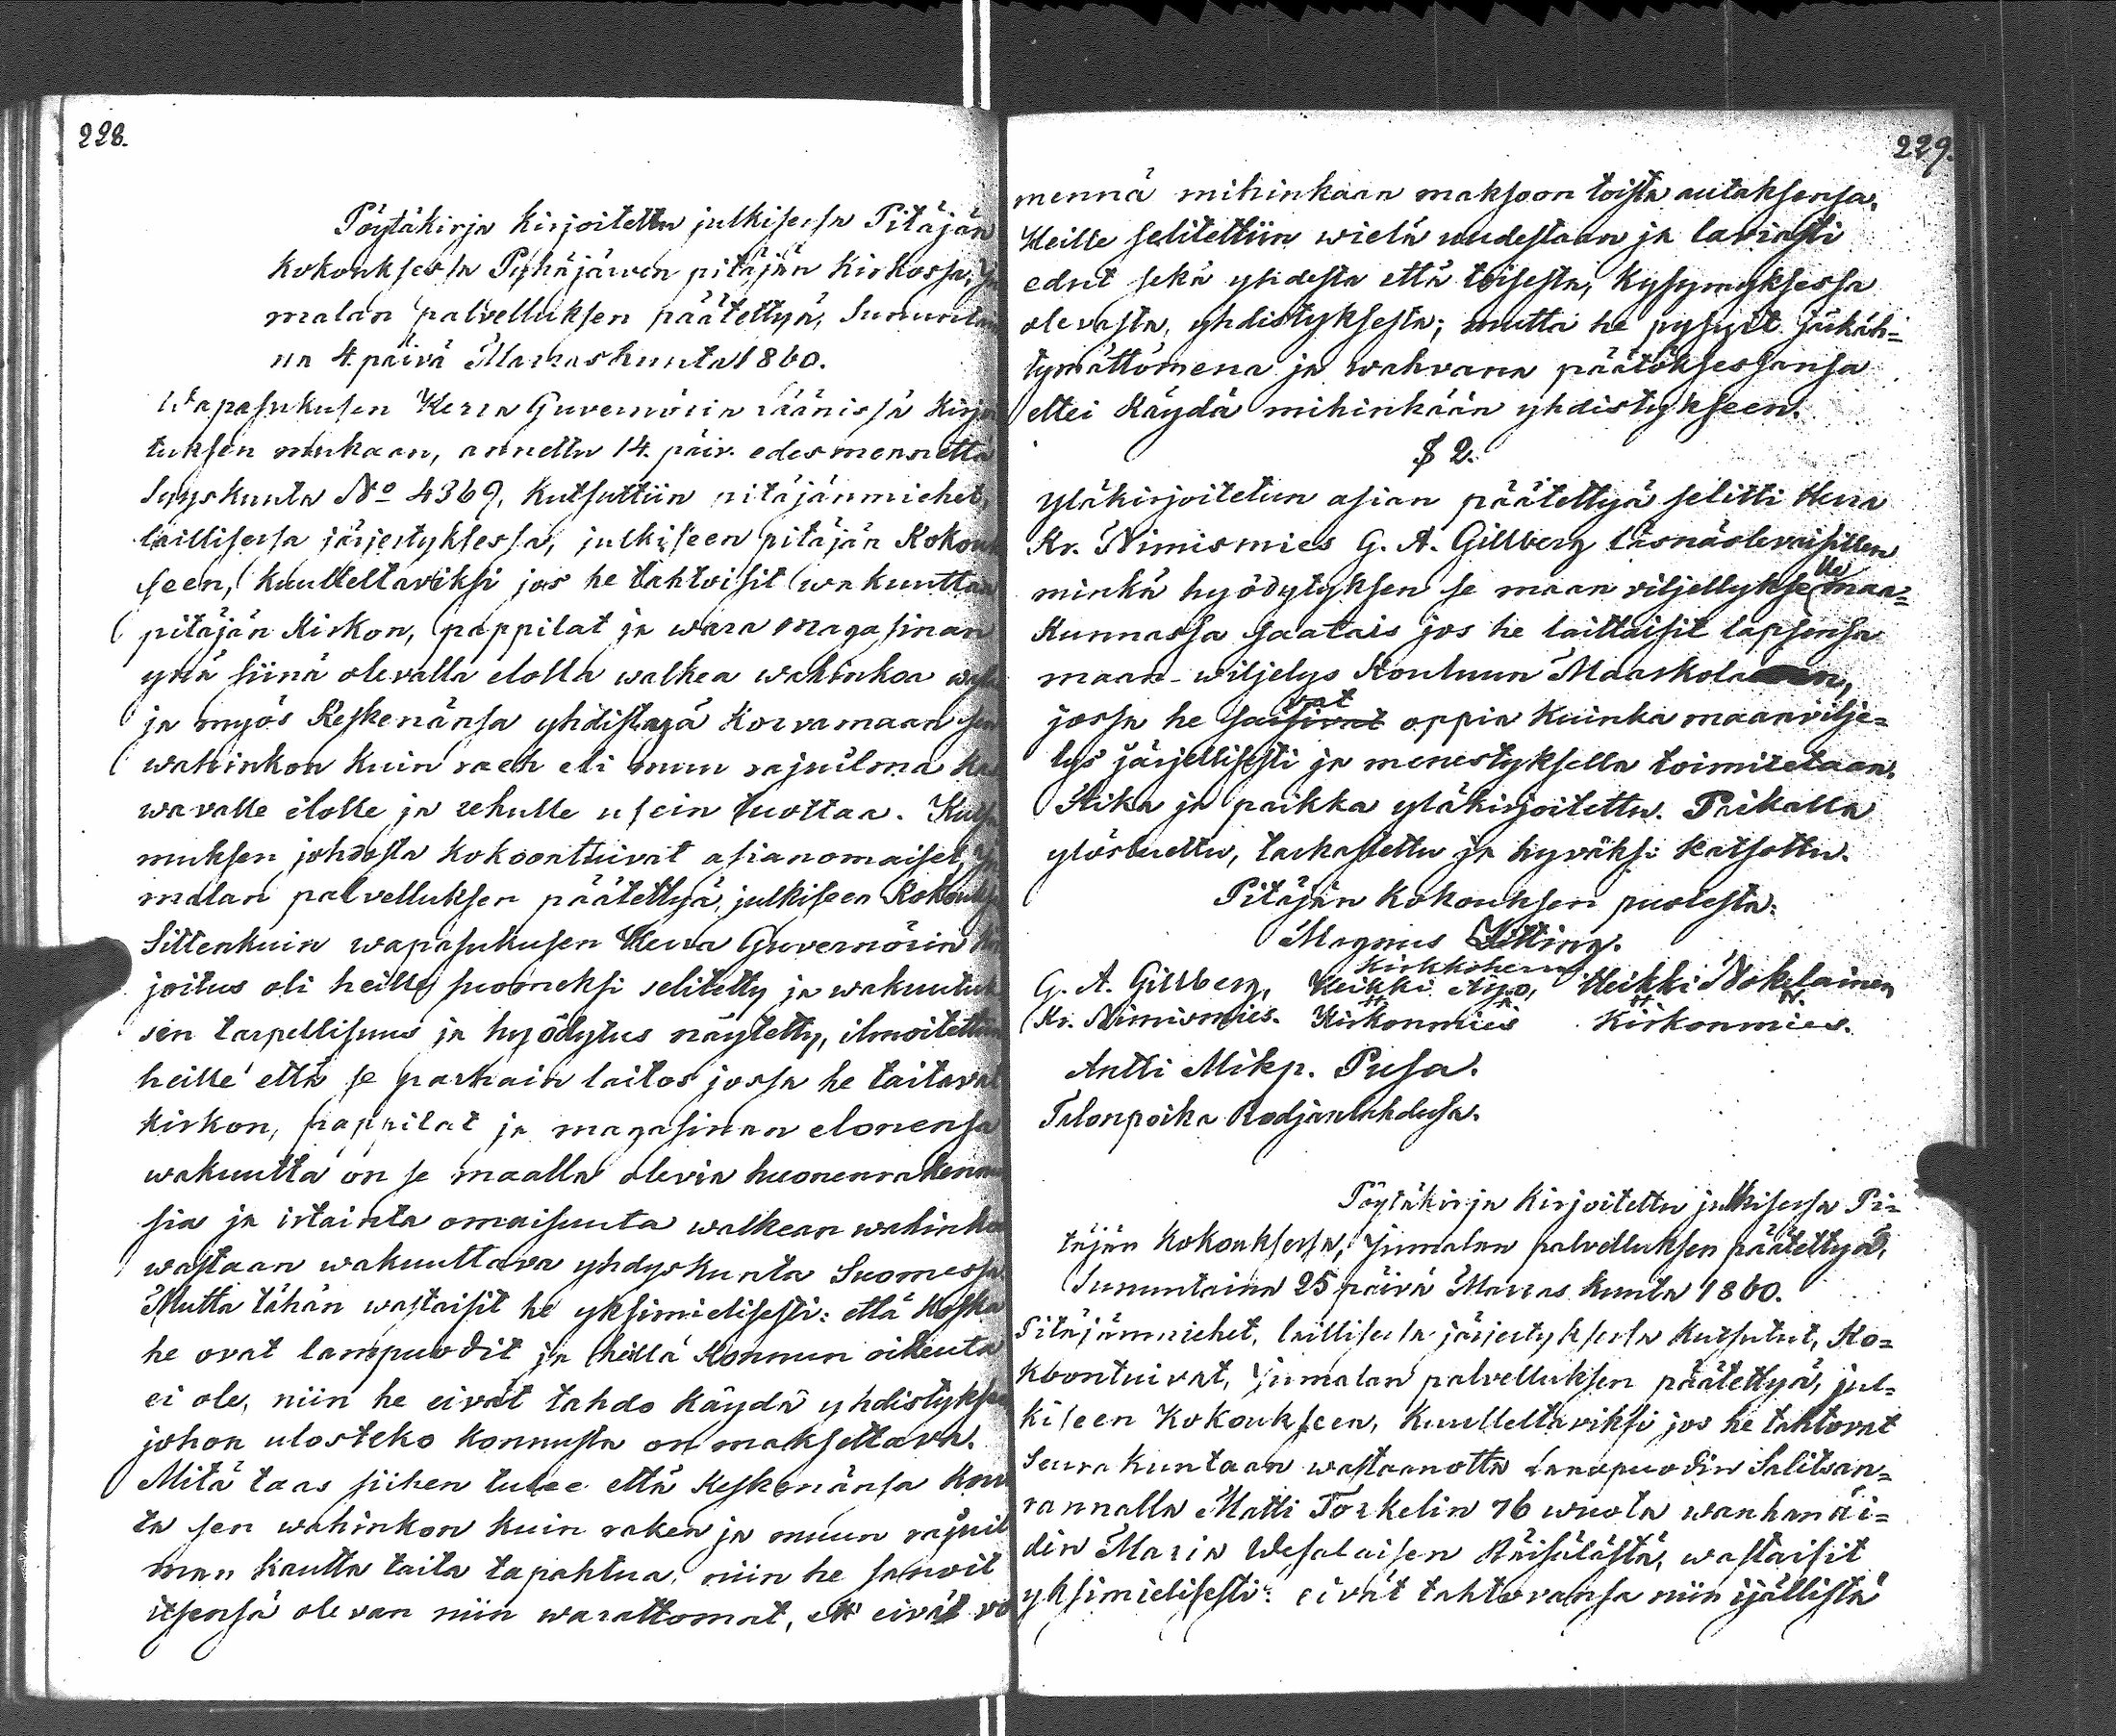 228.
Pöytäkirja kirjoitettu julkisessa Pitäjän
kokouksessa Pyhäjärven pitäjän kirkossa, Ju
malan palvelluksen päätettyä, Sunnuntai
na 4. päivä Marraskuuta 1860.
Wapasukusen Herra Guvernörin läänissä kirjoi
tuksen mukaan, annettu 14. päiv. edesmennettä
Syyskuuta No 4369, kutsuttiin pitäjänmiehet,
laillisessa järjestyksessa, julkiseen pitäjän Kokouk
seen, kuulteltaviksi jos he tahtoisit wakuuttaa
pitäjän Kirkon, pappilat ja wara magasinan
ynä siinä olevalla elolla walkea wahinkoa wasta
ja myös Keskenänsa yhdistayä Korvamaan sen
wahinkon kuin raeh eli muu rajuilma kas
wavalle elolle ja rehulle usein tuottaa. Kutsu
muksen johdosta kokoontuivat asianomaiset, Ju
malan palvelluksen päätettyä, julkiseen Kokoukse
Sittenkuin wapasukusen Herra Guvernörin kir
joitus oli heille suomeksi selitetty ja wakuutuk
sen tarpellisuus ja hyödytus näytetty, ilmoitettiin
heille että se parhain laitos jossa he taitavat
kirkon, pappilat ja magasinan elonensa
wakuutta on se maalla olevia huonenrakennu
sia ja irtainta omaisuuta walkean wahinkoa
wastaan wakuuttava yhdyskunta Suomessa
Mutta tähän wastaisit he yksimielisesti: että koska
he ovat lampuodit ja heillä Konnun oikeuta
ei ole, niin he eivät tahdo käydä yhdistyksen
johon ulosteko konnusta on maksettava.
Mitä taas siihen tulee että Keskenänsa Korva
ta sen wahinkon kuin raken ja muun rajuil
man kautta taita tapahtua, niin he sanoit
itsensä olevan niin warattomat, ett eivät vo
229.
mennä mihinkaan maksoon toista autaksensa.
Heille selitettiin wielä uudestaan ja laviasti
edut sekä yhdesta että toisesta, kysymyksessa
olevasta, yhdistyksesta; mutta he pysyit järkäh=
tymättömena ja wahvana päätöksessansa
ettei Käydä mihinkään yhdistykseen.
§ 2.
Yläkirjoitetun asian päätettyä selitti Herra
Kr. Nimismies G. A. Gillberg läsnäolevaisillen
minkä hyödytyksen se maan viljellykselle maa=
kunnassa saatais jos he laittaisit lapsensa
maan-wiljelys Kouluun Maaskola
jossa he saisivat vat oppia kuinka maanvilje=
lys järjellisesti ja menestyksella toimitetaan.
Aika ja paikka yläkirjoitettu. Paikalla
ylösluettu, tarkastettu ja hyväksi katsottu.
Pitäjän kokouksen puolesta:
Magnus
Kirkkoherra
G. A. Gillberg, Heikki Äijö, Heikki Nokelainen
Kr. Nimismies. Kirkonmies Kirkonmies.
Antti Mikp. Pusa.
Talonpoika
Pöytäkirja kirjoitettu julkisessa Pi=
täjän kokouksessa, Jumalan palvelluksen päätettyä,
Sunnuntaina 25 päivä Marraskuuta 1860.
Pitäjänmiehet, laillisessa järjestyksessa kutsutut, Ko=
koontuivat, Jumalan palvelluksen päätettyä, jul=
kiseen Kokoukseen, kuulleltaviksi jos he tahtovat
Seurakuntaan wastaanotta Lampuodin Salitsan=
rannalla Matti Torkelin 76 wuota wanhan äi=
din Maria Wesalaisen Räisälästä, wastaisit
yksimielisesti: eivät tahtovansa niin ijällistä